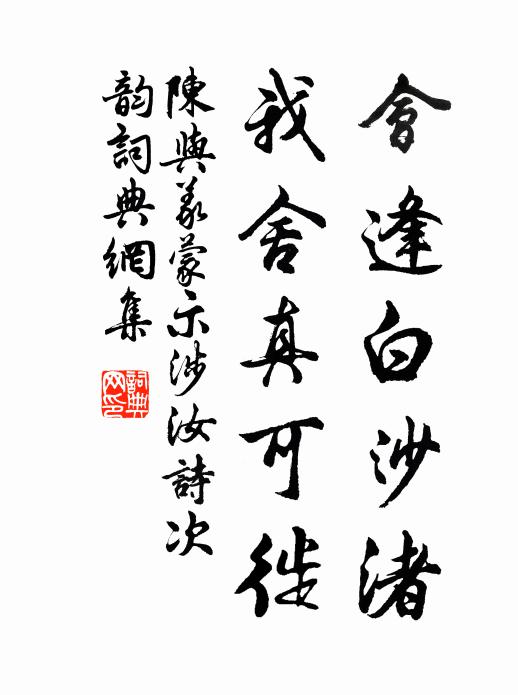 會逢白沙渚
我舍真可徙
陳與義蒙示涉汝詩次
韵詞典網集
詞典
网印